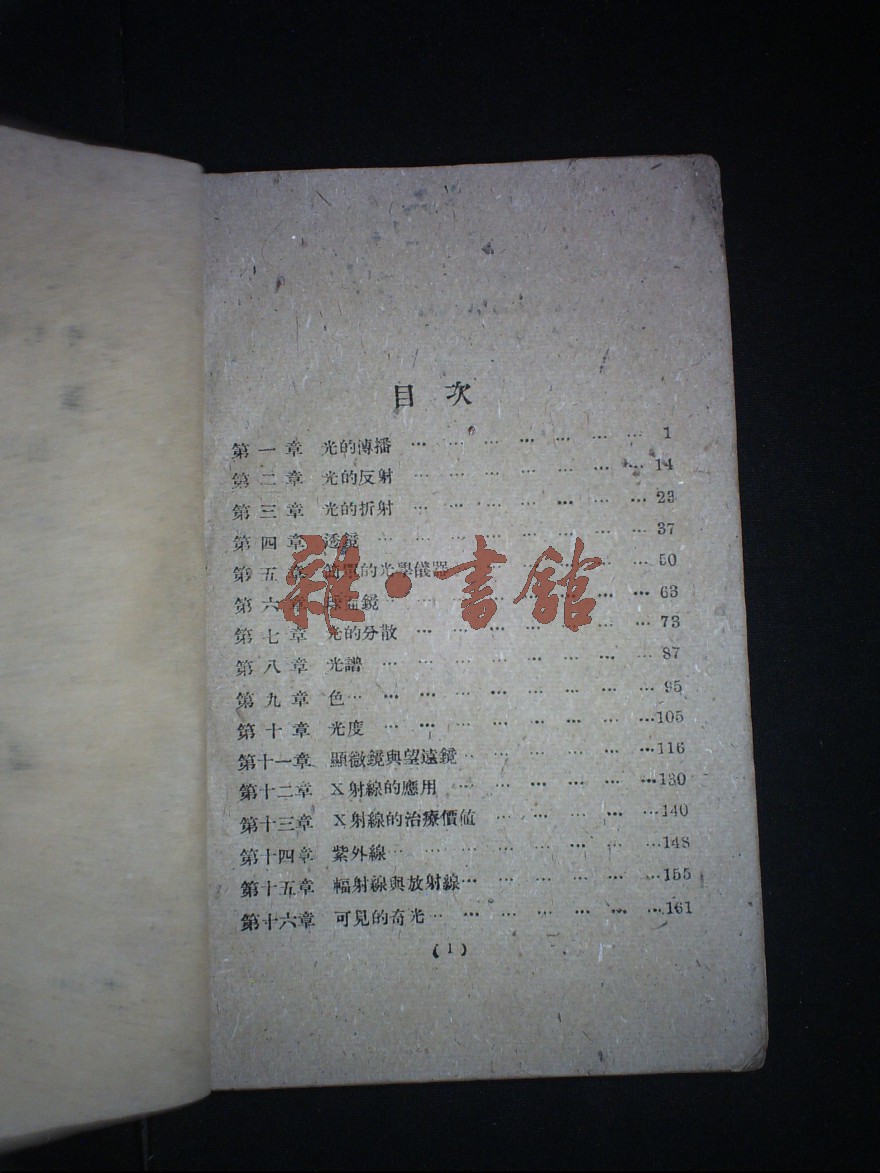 目次
第一章 光的傳播 … … … … … … … 1
第二章 光的反射 … … … … … … … 14
第三章 光的折射 … … … … … … … 23
第四章 透鏡 … … … … … … … … 37
第五章 簡單的光學儀器 … … … … … 50
第六章 球面鏡 … … … … … … … 63
第七章 光的分散 … … … … … … … 73
第八章 光譜 … … … … … … … … 87
第九章 色 … … … … … … … … … 95
第十章 光度 … … … … … … … … 105
第十一章 顯微鏡與望遠鏡 … … … … … … 116
第十二章 X射線的應用 … … … … … … 130
第十三章 X射線的治療價値 … … … … … 140
第十四章 紫外線 … … … … … … … … 148
第十五章 輻射線與放射線 … … … … … … 155
第十六章 可見的奇光 … … … … … … … 161
(1)
雜·書館